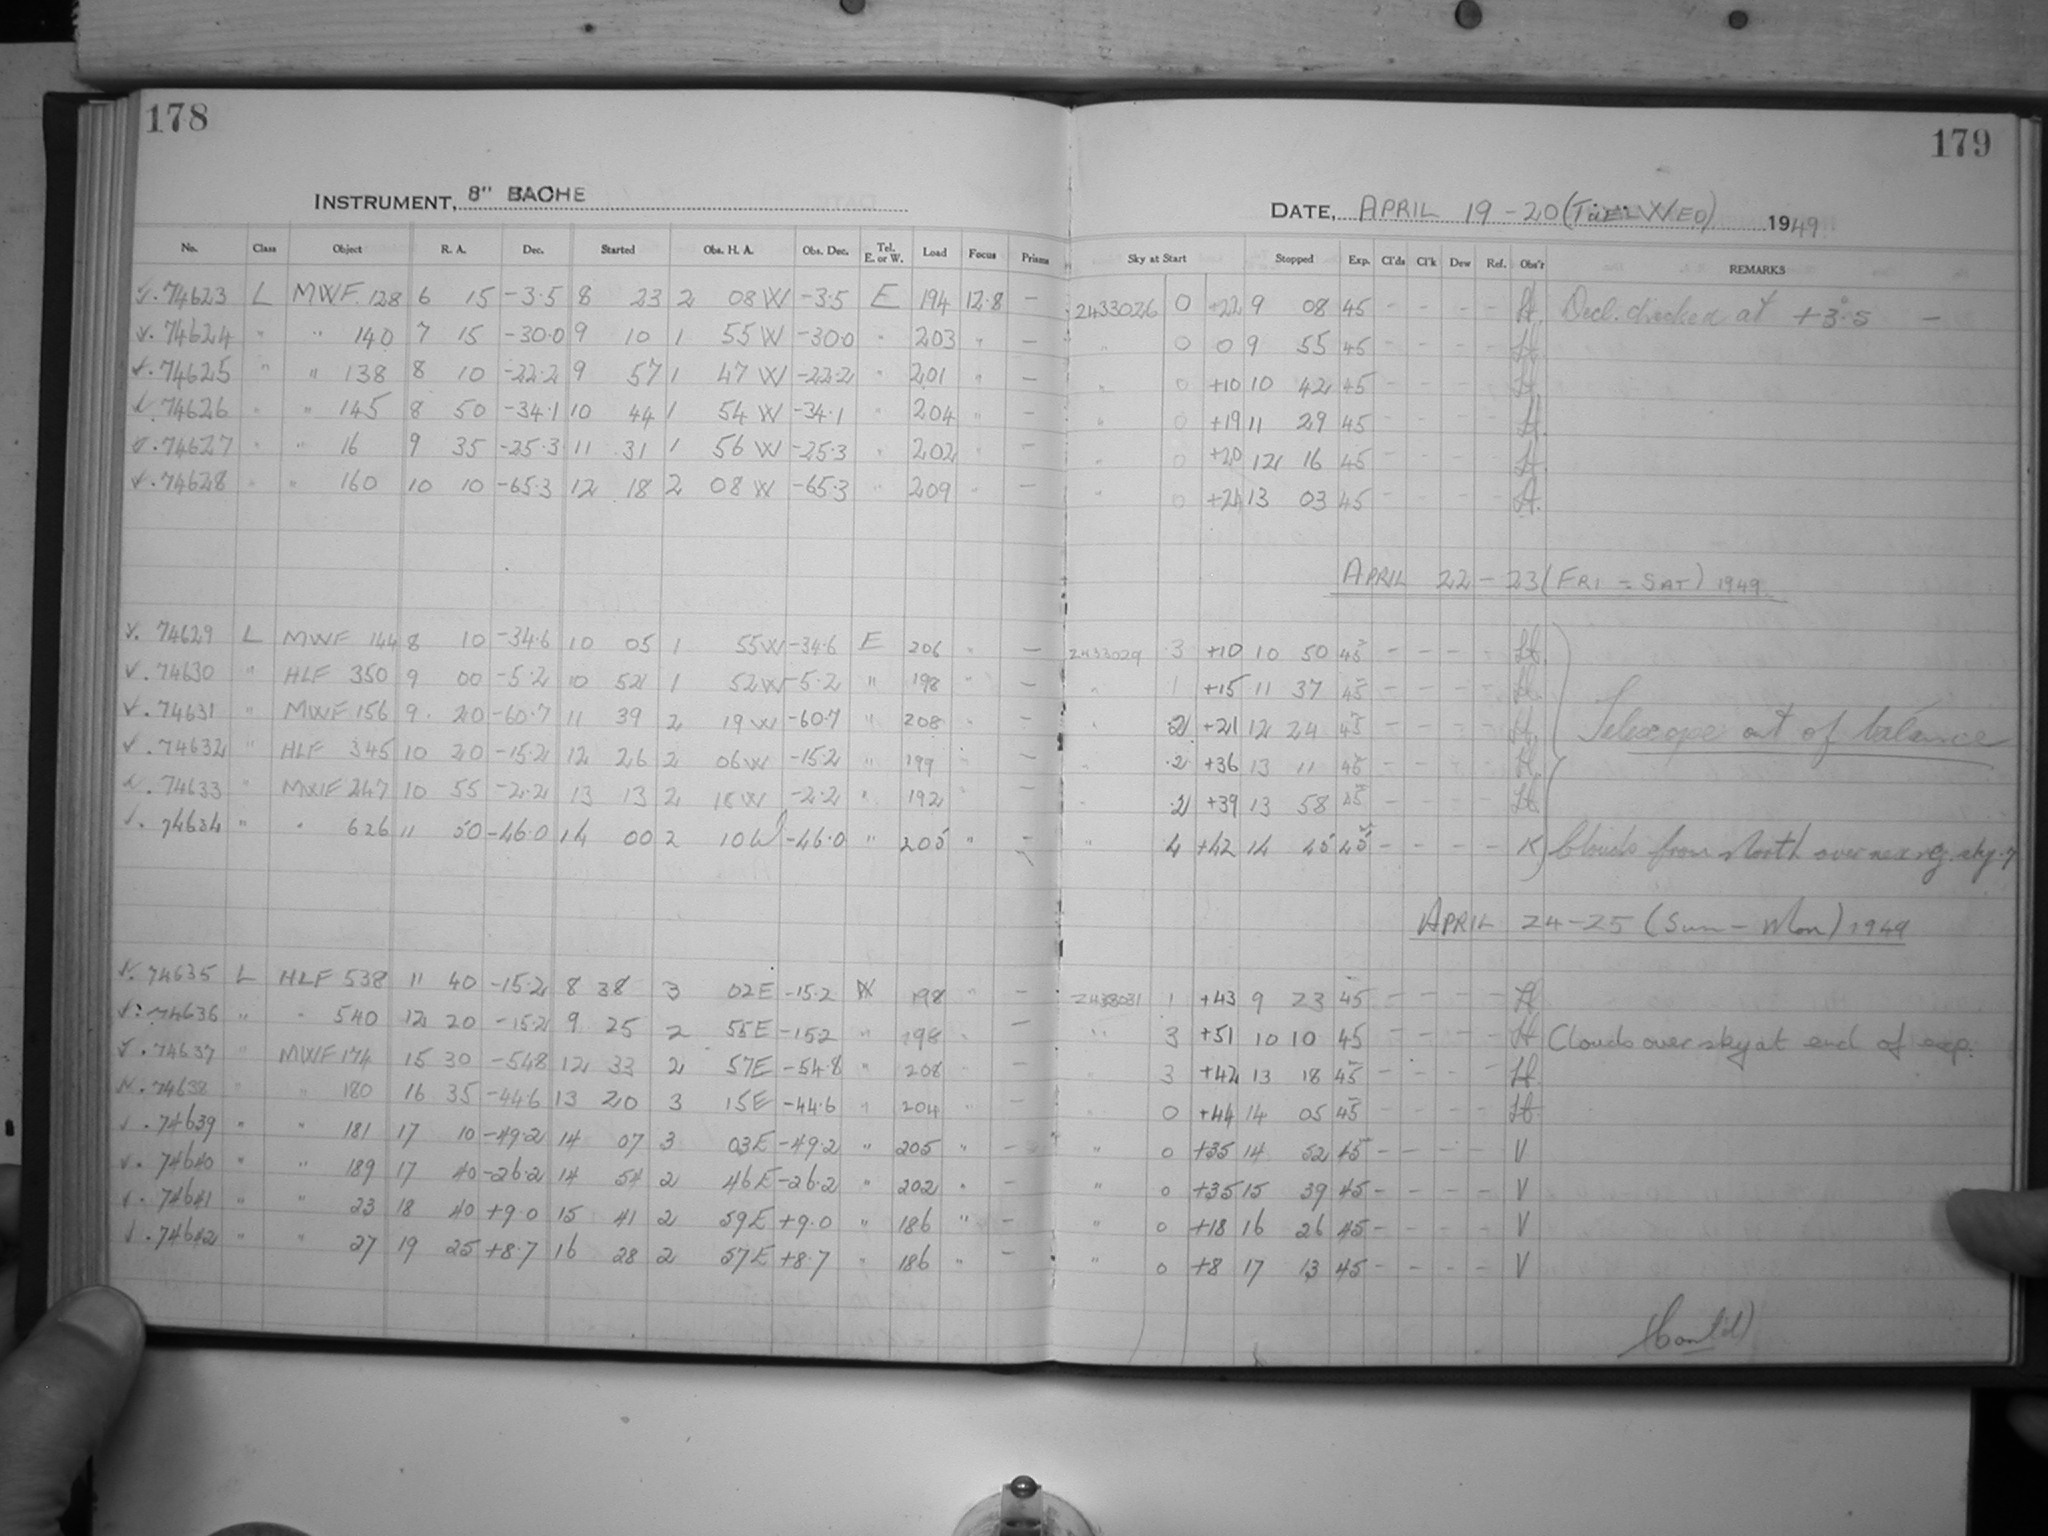 178
179
INSTRUMENT, 8" BACHE
DATE, APRIL 19-20 (TUE-WED) 1949
No. Class Object R. A. Dec. Started Obs. H. A. Obs. Dec. Tel. E. or W. Load Focus Prisms Sky at Start Stopped Exp. Cl'ds Cl'k Dew Ref. Obs'r REMARKS
√. 74623 L MWF 128 6 15 -3.5 8 23 2 08 W -3.5 E 194 12.8 - 2433026 0 9 08 45 - - - - H. Decl. checked at +3°.5 -
√. 74624 " " 140 7 15 -30.0 9 10 1 55 W -30.0 " 203 " - " 0 0 9 55 45 - - - - H.
√. 74625 " " 138 8 10 -22.2 9 57 1 47 W -22.2 " 201 " - " 0 +10 10 42 45 - - - - H.
√. 74626 " " 145 8 50 -34.1 10 44 1 54 W -34.1 " 204 " - " 0 +19 11 29 45 - - - - H.
√. 74627 " " 16 9 35 -25.3 11 31 1 56 W -25.3 " 202 " - " 0 +20 12 16 45 - - - - H.
√. 74628 " " 160 10 10 -65.3 12 18 2 08 W -65.3 " 209 " - " 0 13 03 45 - - - - H.
APRIL 22-23 (FRI - SAT) 1949
√. 74629 L MWF 144 8 10 -34.6 10 05 1 55 W -34.6 E 206 " - 2433029 3 +10 10 50 45 - - - - H.
√. 74630 " HLF 350 9 00 -5.2 10 52 1 52 W -5.2 " 198 " - " 1 +15 11 37 45 - - - - H.
√. 74631 " MWF 156 9 20 -60.7 11 39 2 19 W -60.7 " 208 " - " 2 +21 12 24 45 - - - - H. Telescope out of balance
√. 74632 " HLF 345 10 20 -15.2 12 26 2 06 W -15.2 " 199 " - " 2 +36 13 11 45 - - - - H.
√. 74633 " MWF 247 10 55 -2.2 13 13 2 18 W -2.2 " 192 " - " 2 +39 13 58 45 - - - - H.
√. 74634 " " 626 11 50 -46.0 14 00 2 10 W -46.0 " 205 " - " 4 +42 14 45 45 - - - - K Clouds from North over sky
APRIL 24-25 (Sun - Mon) 1949
√. 74635 L HLF 538 11 40 -15.2 8 38 3 02 E -15.2 W 198 " - 2433031 1 +43 9 23 45 - - - - H
√. 74636 " " 540 12 20 -15.2 9 25 2 55 E -15.2 " 198 " - " 3 +51 10 10 45 - - - - H Clouds over sky at end of exp.
√. 74637 " MWF 174 15 30 -54.8 12 33 2 57 E -54.8 " 208 " - " 3 +42 13 18 45 - - - - H
√. 74638 " " 180 16 35 -44.6 13 20 3 15 E -44.6 " 204 " - " 0 +44 14 05 45 - - - - H
√. 74639 " " 181 17 10 -49.2 14 07 3 03 E -49.2 " 205 " - " 0 +35 14 52 45 - - - - V
√. 74640 " " 189 17 40 -26.2 14 54 2 46 E -26.2 " 202 " - " 0 +35 15 39 45 - - - - V
√. 74641 " " 23 18 40 +9.0 15 41 2 59 E +9.0 " 186 " - " 0 +18 16 26 45 - - - - V
√. 74642 " " 27 19 25 +8.7 16 28 2 57 E +8.7 " 186 " - " 0 +8 17 13 45 - - - - V
(Cont'd)